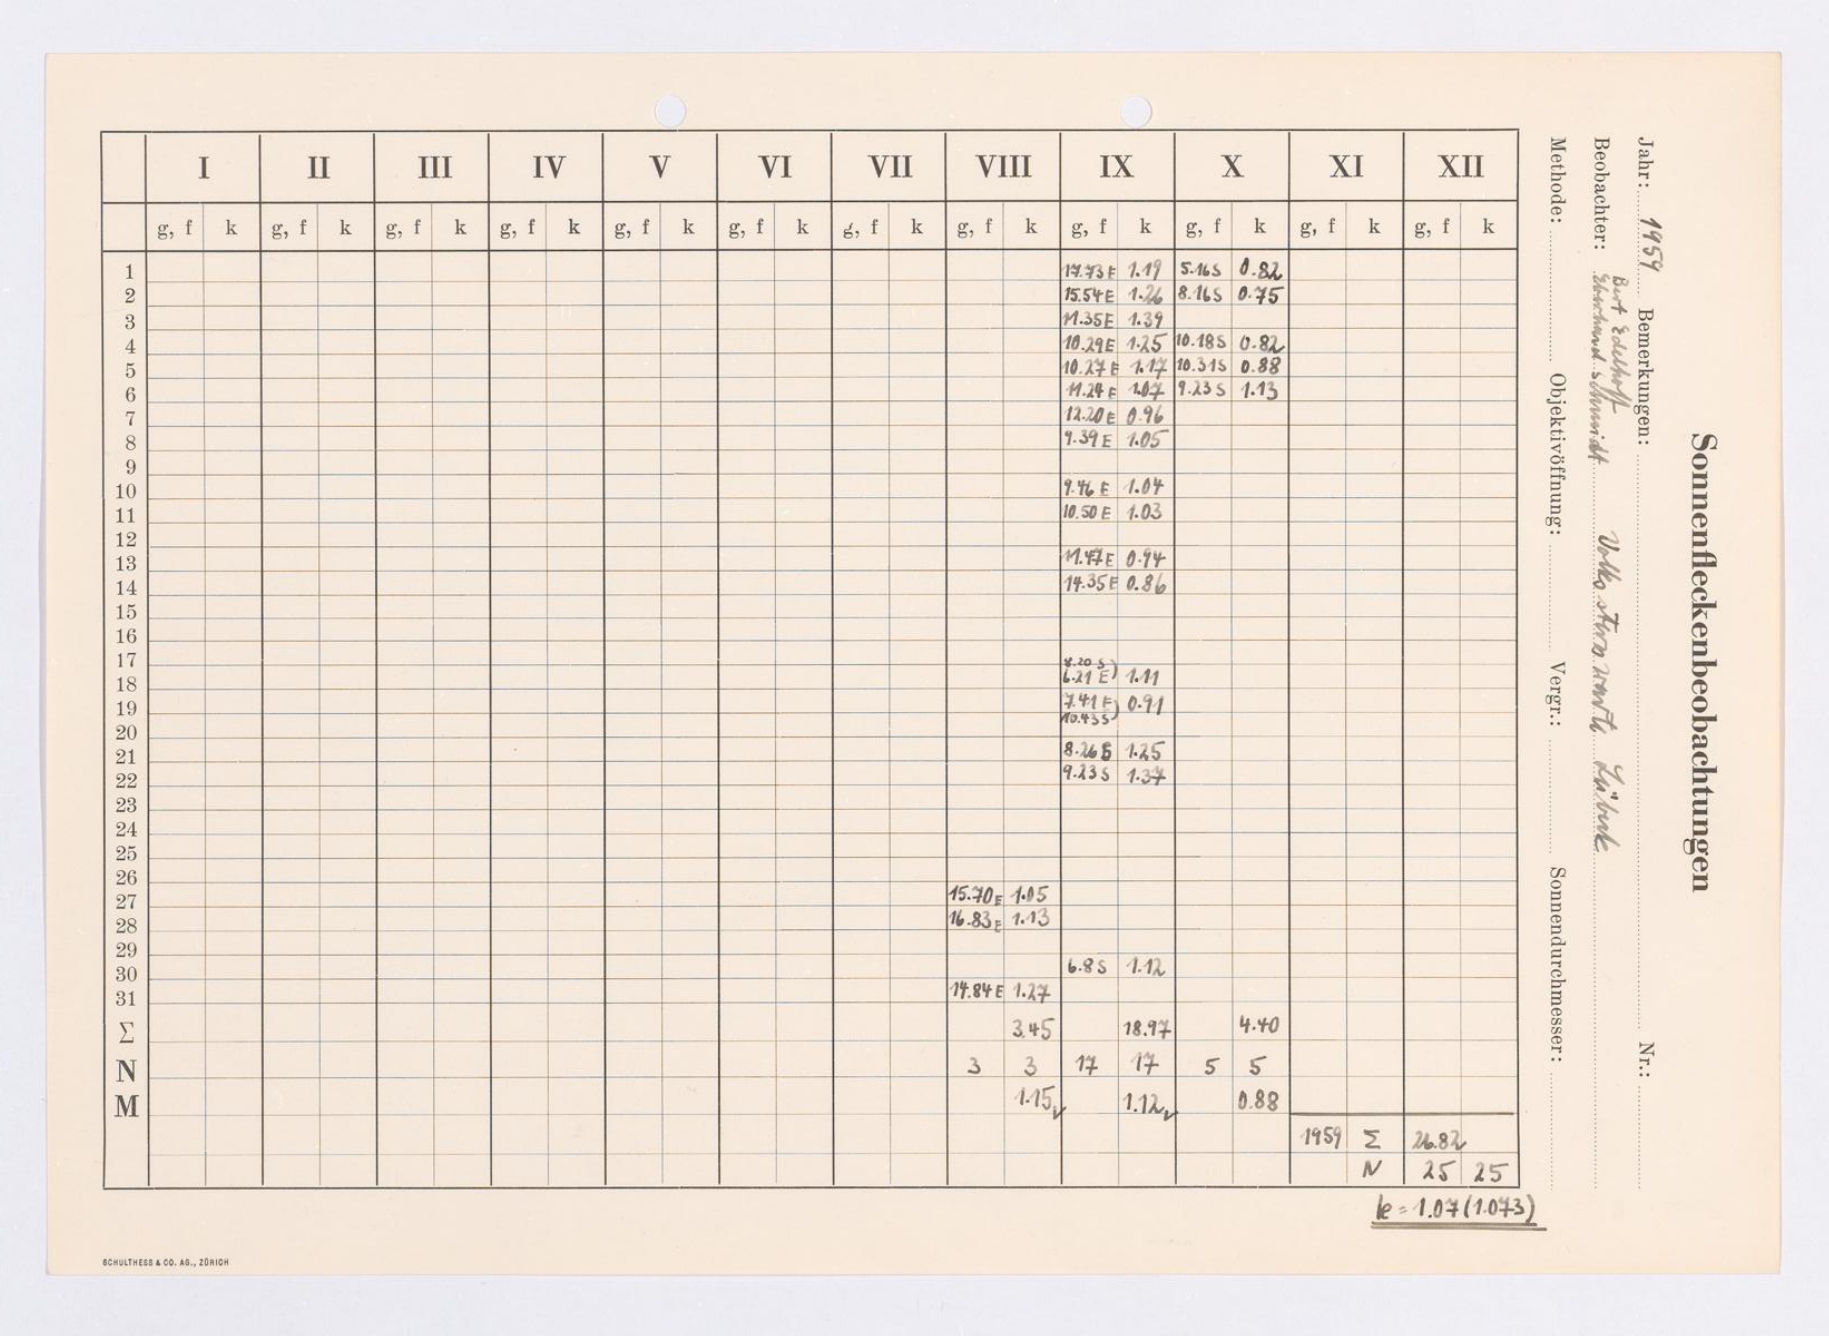 Sonnenfleckenbeobachtungen
Jahr: 1959 Bemerkungen: Nr.:
Beobachter: Bert Edelhoff
Eberhard Schmidt Volkssternwarte Lübeck
Methode: Objektivöffnung: Vergr.: Sonnendurchmesser:
I II III IV V VI VII VIII IX X XI XII
g, f k g, f k g, f k g, f k g, f k g, f k g, f k g, f k g, f k g, f k g, f k g, f k
1 17.73 E 1.19 5.16 S 0.82
2 15.54 E 1.26 8.16 S 0.75
3 11.35 E 1.39
4 10.29 E 1.25 10.18 S 0.82
5 10.27 E 1.17 10.31 S 0.88
6 11.24 E 1.07 9.23 S 1.13
7 12.20 E 0.96
8 9.39 E 1.05
9
10 9.46 E 1.04
11 10.50 E 1.03
12
13 11.47 E 0.94
14 14.35 E 0.86
15
16
17 8.20 S)
18 6.21 E) 1.11
19 7.41 E) 0.91
10.43 S)
20
21 8.26 S 1.25
22 9.23 S 1.37
23
24
25
26
27 15.70 E 1.05
28 16.83 E 1.13
29
30 6.8 S 1.12
31 14.84 E 1.27
Σ 3.45 18.97 4.40
N 3 3 17 17 5 5
M 1.15 ✓ 1.12 ✓ 0.88
1959 Σ 26.82
N 25 25
k = 1.07 (1.073)
SCHULTHESS & CO. AG., ZÜRICH